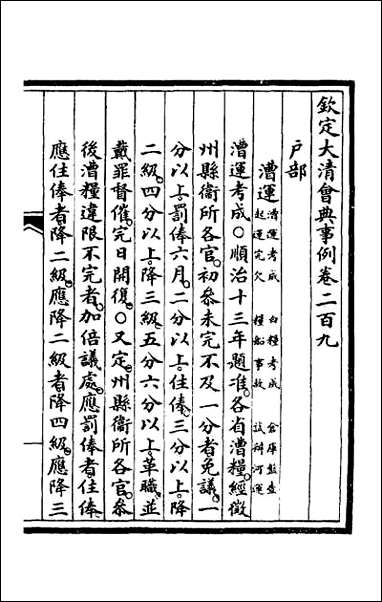 欽定大清會典事例卷二百九
戶部
漕運 漕運考成 白糧考成 倉庫盤查
起運完欠 糧船事故 試辦河運
漕運考成○順治十三年題准各省漕糧經徵
州縣衛所各官初參未完不及一分者免議一
分以上罰俸六月二分以上住俸三分以上降
二級四分以上降三級五分六分以上革職並
戴罪督催完日開復○又定州縣衛所各官參
後漕糧違限不完者加倍議處應罰俸者住俸
應住俸者降二級應降二級者降四級應降三